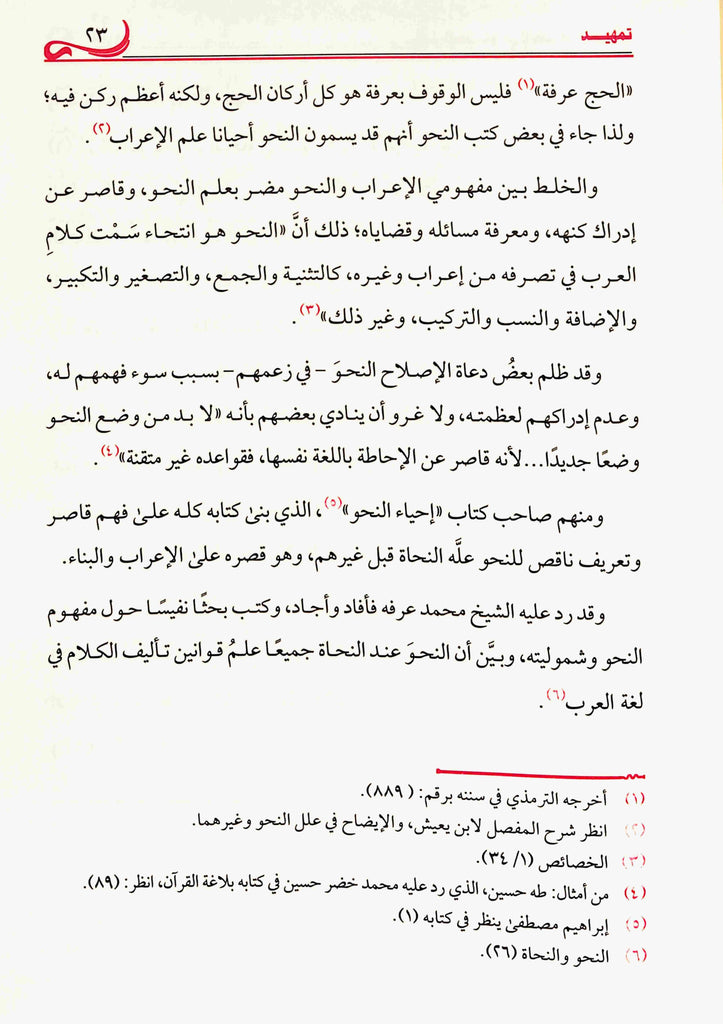 تمهيد
٢٣
«الحج عرفة»(١) فليس الوقوف بعرفة هو كل أركان الحج، ولكنه أعظم ركن فيه؛
ولذا جاء في بعض كتب النحو أنهم قد يسمون النحو أحيانا علم الإعراب(٢).
والخلط بين مفهومي الإعراب والنحو مضر بعلم النحو، وقاصر عن
إدراك كنهه، ومعرفة مسائله وقضاياه؛ ذلك أنَّ «النحو هو انتحاء سَمْت كلامِ
العرب في تصرفه من إعراب وغيره، كالتثنية والجمع، والتصغير والتكبير،
والإضافة والنسب والتركيب، وغير ذلك»(٣).
وقد ظلم بعضُ دعاة الإصلاح النحوَ – في زعمهم– بسبب سوء فهمهم له،
وعدم إدراكهم لعظمته، ولا غرو أن ينادي بعضهم بأنه «لا بد من وضع النحو
وضعًا جديدًا...لأنه قاصر عن الإحاطة باللغة نفسها، فقواعده غير متقنة»(٤).
ومنهم صاحب كتاب «إحياء النحو»(٥)، الذي بنىٰ كتابه كله علىٰ فهم قاصر
وتعريف ناقص للنحو علَّه النحاة قبل غيرهم، وهو قصره علىٰ الإعراب والبناء.
وقد رد عليه الشيخ محمد عرفه فأفاد وأجاد، وكتب بحثًا نفيسًا حول مفهوم
النحو وشموليته، وبيَّن أن النحوَ عند النحاة جميعًا علمُ قوانين تأليف الكلام في
لغة العرب(٦).
(١) أخرجه الترمذي في سننه برقم: (٨٨٩).
(٢) انظر شرح المفصل لابن يعيش، والإيضاح في علل النحو وغيرهما.
(٣) الخصائص (١/ ٣٤).
(٤) من أمثال: طه حسين، الذي رد عليه محمد خضر حسين في كتابه بلاغة القرآن، انظر: (٨٩).
(٥) إبراهيم مصطفىٰ ينظر في كتابه (١).
(٦) النحو والنحاة (٢٦).